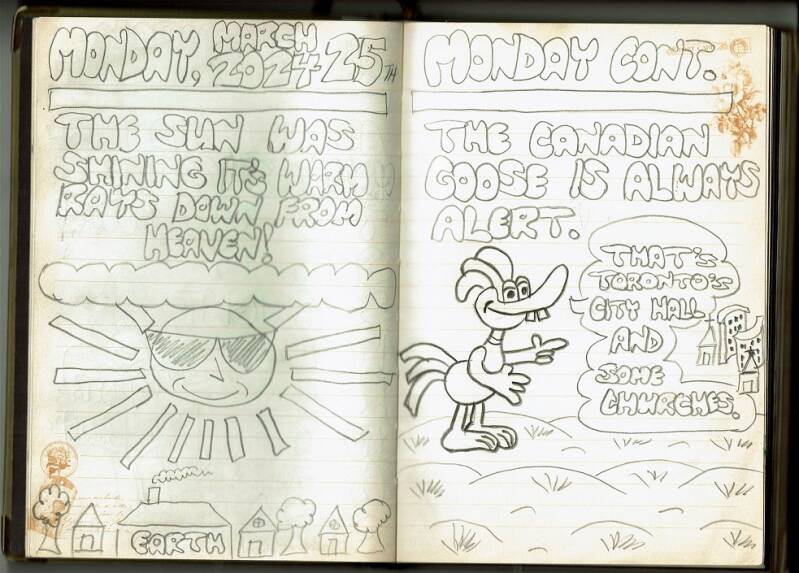 MONDAY, MARCH 25TH
2024
THE SUN WAS
SHINING IT'S WARM
RAYS DOWN FROM
HEAVEN!
EARTH
MONDAY CONT.
THE CANADIAN
GOOSE IS ALWAYS
ALERT.
THAT'S
TORONTO'S
CITY HALL
AND
SOME
CHURCHES.